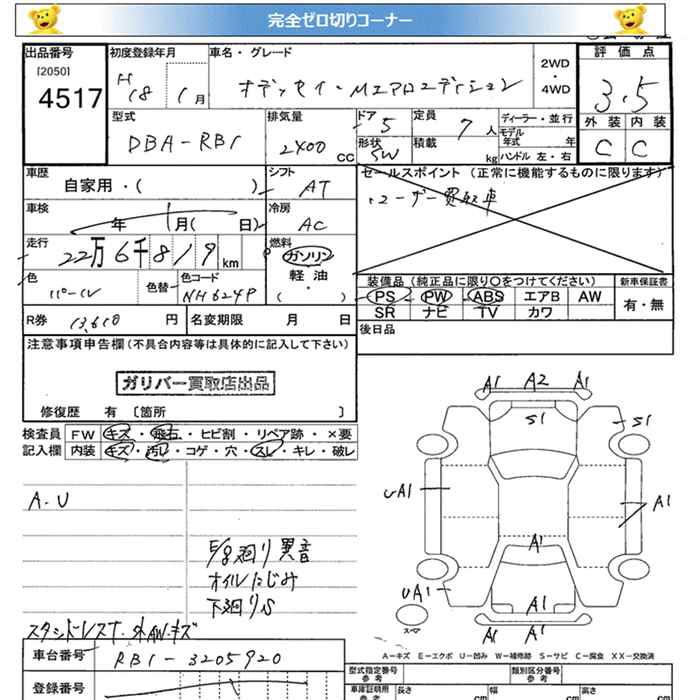 完全ゼロ切りコーナー
出品番号 初度登録年月 車名・グレード 評価点
[2050] H18 1月 オデッセイ・Mエアロエディション 2WD・4WD 3.5
4517
型式 排気量 ドア 定員 ディーラー・並行 外装 内装
DBA-RB1 2400cc 5 7人 モデル年式 年 C C
形状 SW 積載 kg ハンドル 左・右
車歴 自家用・( ) シフト AT セールスポイント (正常に機能するものに限ります)
車検 年 1月( 日) 冷房 AC ・ユーザー買取車
走行 22万6千819km 燃料 ガソリン
軽油
( ・ )
色 パール 色替 色コード NH624P
装備品(純正品に限り〇をつけてください) 新車保証書
PS PW ABS エアB AW 有・無
SR ナビ TV カワ
R券 13,610円 名変期限 月 日 後日品
注意事項申告欄(不具合内容等は具体的に記入して下さい)
ガリバー買取店出品
修復歴 有 〔箇所 〕
検査員 FW キズ・飛石・ヒビ割・リペア跡・×要
記入欄 内装 キズ・汚レ・コゲ・穴・スレ・キレ・破レ
A1 A2 A1
S1 S1
UA1 A1
A1
UA1 A1
A1 A1
スペア
A-U
E/g廻り異音
オイルにじみ
下廻りS
A-キズ E-エクボ U-凹み W-補修跡 S-サビ C-腐食 XX-交換済
車台番号 RB1-3205920
登録番号
型式指定番号 参考 類別区分番号 参考
車庫証明用 参考 長さ cm 幅 cm 高さ cm